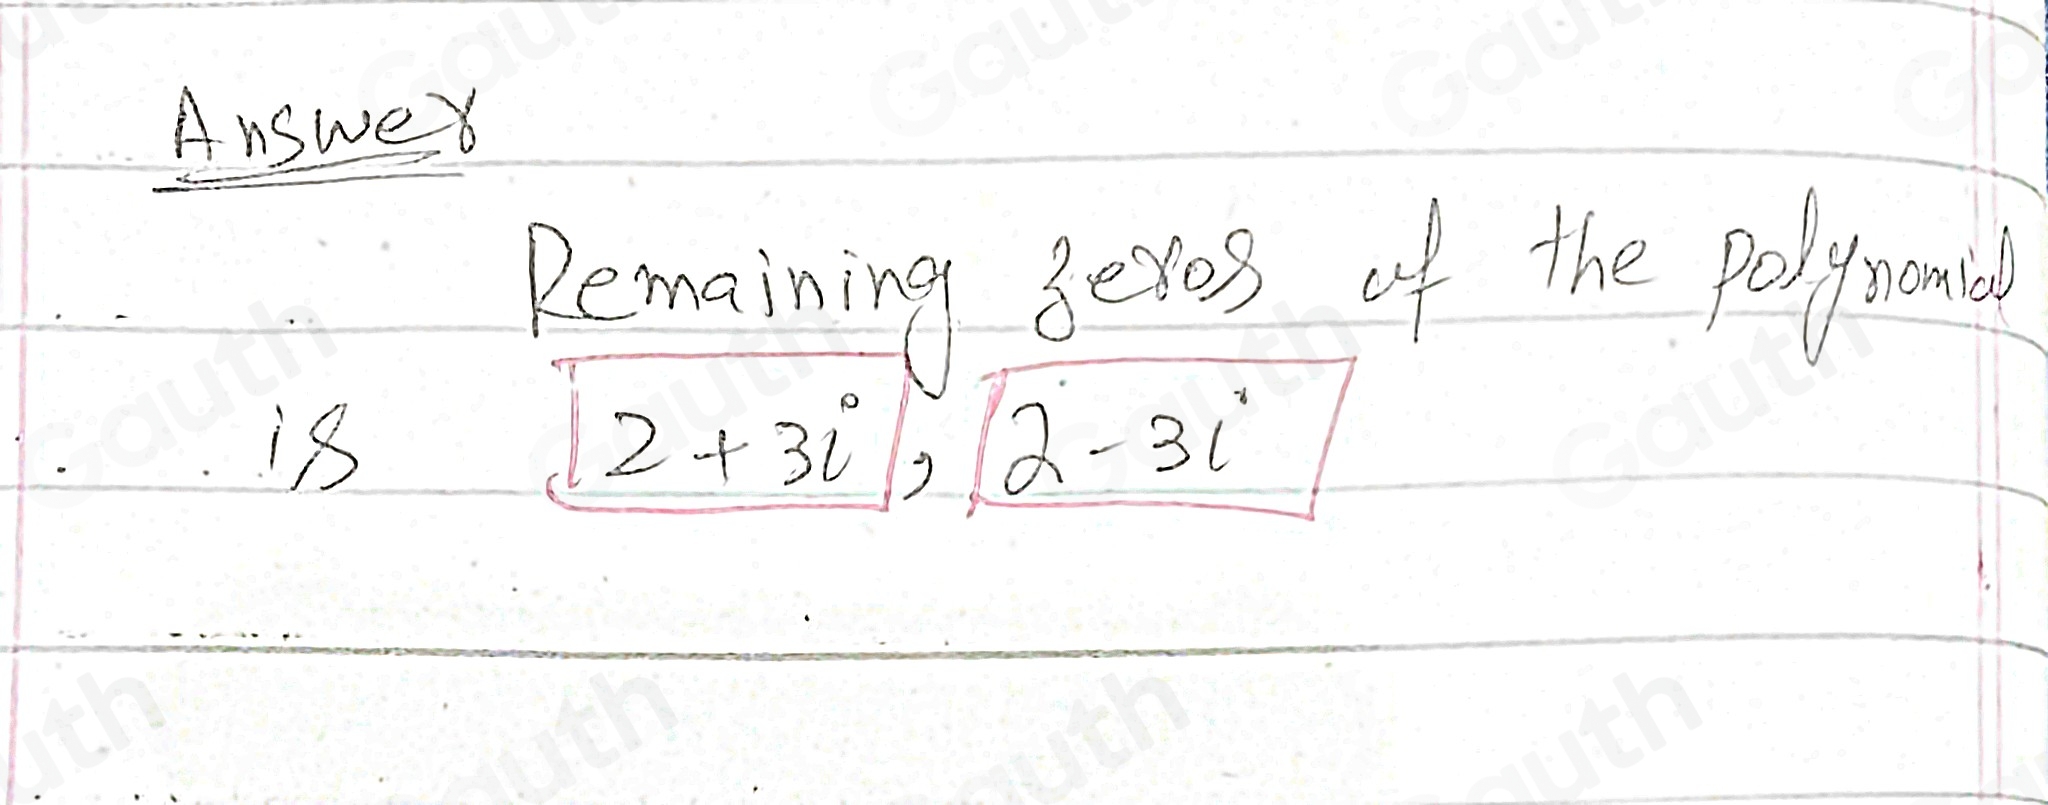 Answer
Remaining zeros of the polynomial
is 2+3i, 2-3i